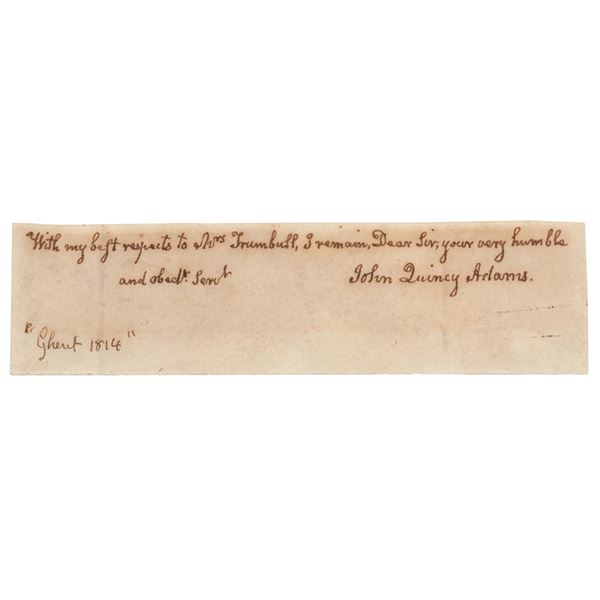 With my best respects to Mrs Trumbull, I remain, Dear Sir, your very humble
and obedt. Servt
John Quincy Adams.
"Ghent 1814"